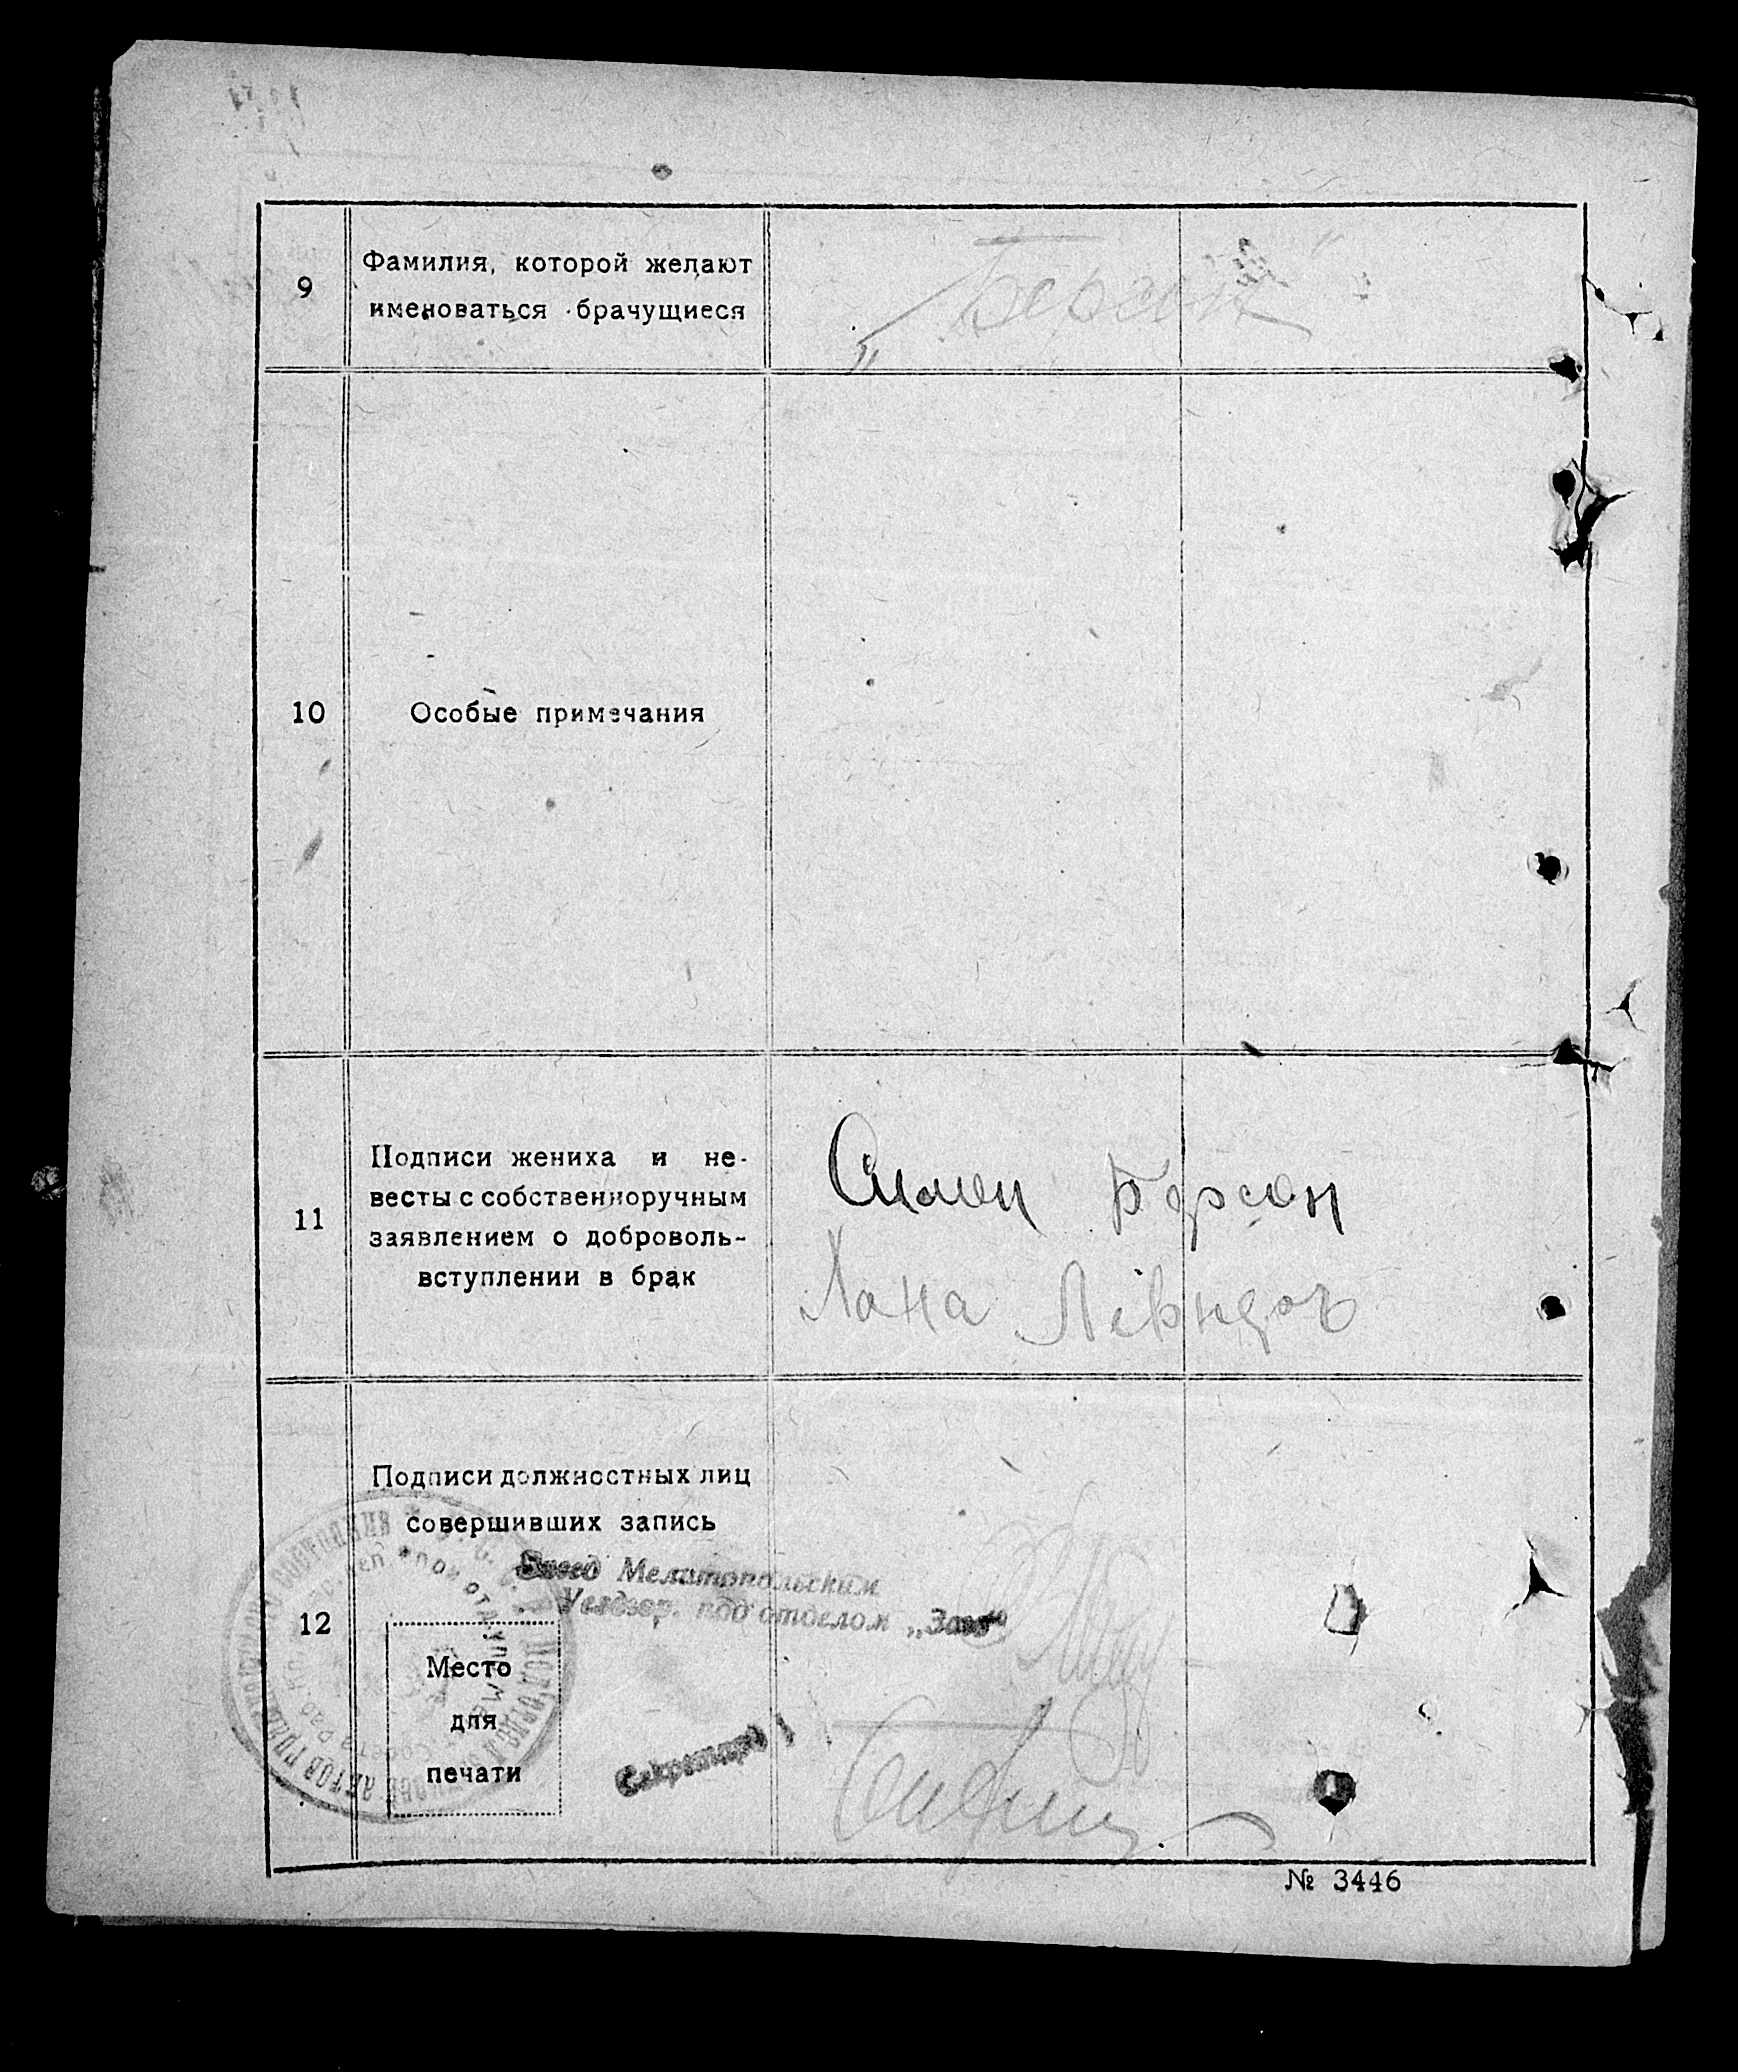 9
Фамилия, которой желают
именоваться брачущиеся
„Берсон“
10
Особые примечания
11
Подписи жениха и не-
весты с собственноручным
заявлением о доброволь-
вступлении в брак
Симон Берсон
Хана
12
Подписи должностных лиц
совершивших запись
Мелитопольским
под отделом „Загс“
Место
для
печати
Секретарь
№ 3446